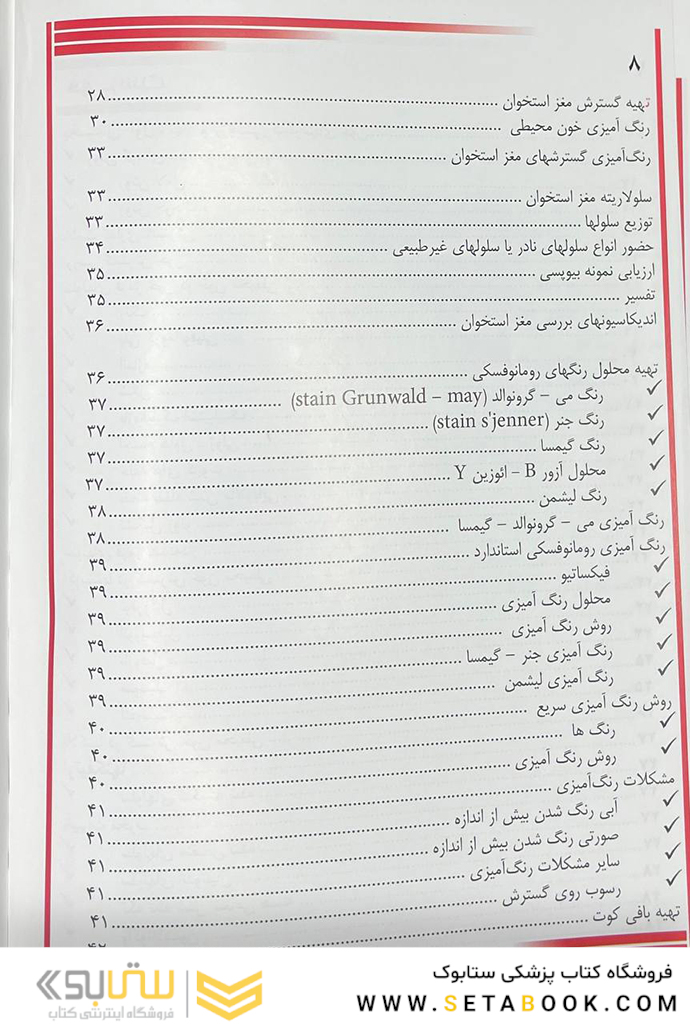 ۸
تهیه گسترش مغز استخوان ........ ۲۸
رنگ آمیزی خون محیطی ........ ۳۰
رنگ‌آمیزی گسترشهای مغز استخوان ........ ۳۳
سلولاریته مغز استخوان ........ ۳۳
توزیع سلولها ........ ۳۳
حضور انواع سلولهای نادر یا سلولهای غیرطبیعی ........ ۳۴
ارزیابی نمونه بیوپسی ........ ۳۵
تفسیر ........ ۳۵
اندیکاسیونهای بررسی مغز استخوان ........ ۳۶
تهیه محلول رنگهای رومانوفسکی ........ ۳۶
✓ رنگ می – گرونوالد (stain Grunwald – may) ........ ۳۷
✓ رنگ جنر (stain s'jenner) ........ ۳۷
✓ رنگ گیمسا ........ ۳۷
✓ محلول آزور B - ائوزین Y ........ ۳۷
✓ رنگ لیشمن ........ ۳۸
رنگ آمیزی می – گرونوالد – گیمسا ........ ۳۸
رنگ آمیزی رومانوفسکی استاندارد ........ ۳۹
✓ فیکساتیو ........ ۳۹
✓ محلول رنگ آمیزی ........ ۳۹
✓ روش رنگ آمیزی ........ ۳۹
✓ رنگ آمیزی جنر – گیمسا ........ ۳۹
✓ رنگ آمیزی لیشمن ........ ۳۹
روش رنگ آمیزی سریع ........ ۴۰
✓ رنگ ها ........ ۴۰
✓ روش رنگ آمیزی ........ ۴۰
مشکلات رنگ‌آمیزی ........ ۴۱
✓ آبی رنگ شدن بیش از اندازه ........ ۴۱
✓ صورتی رنگ شدن بیش از اندازه ........ ۴۱
✓ سایر مشکلات رنگ‌آمیزی ........ ۴۱
✓ رسوب روی گسترش ........ ۴۱
تهیه بافی کوت ........ ۴۲
فروشگاه کتاب پزشکی ستابوک
WWW.SETABOOK.COM
ستابوک
فروشگاه اینترنتی کتاب